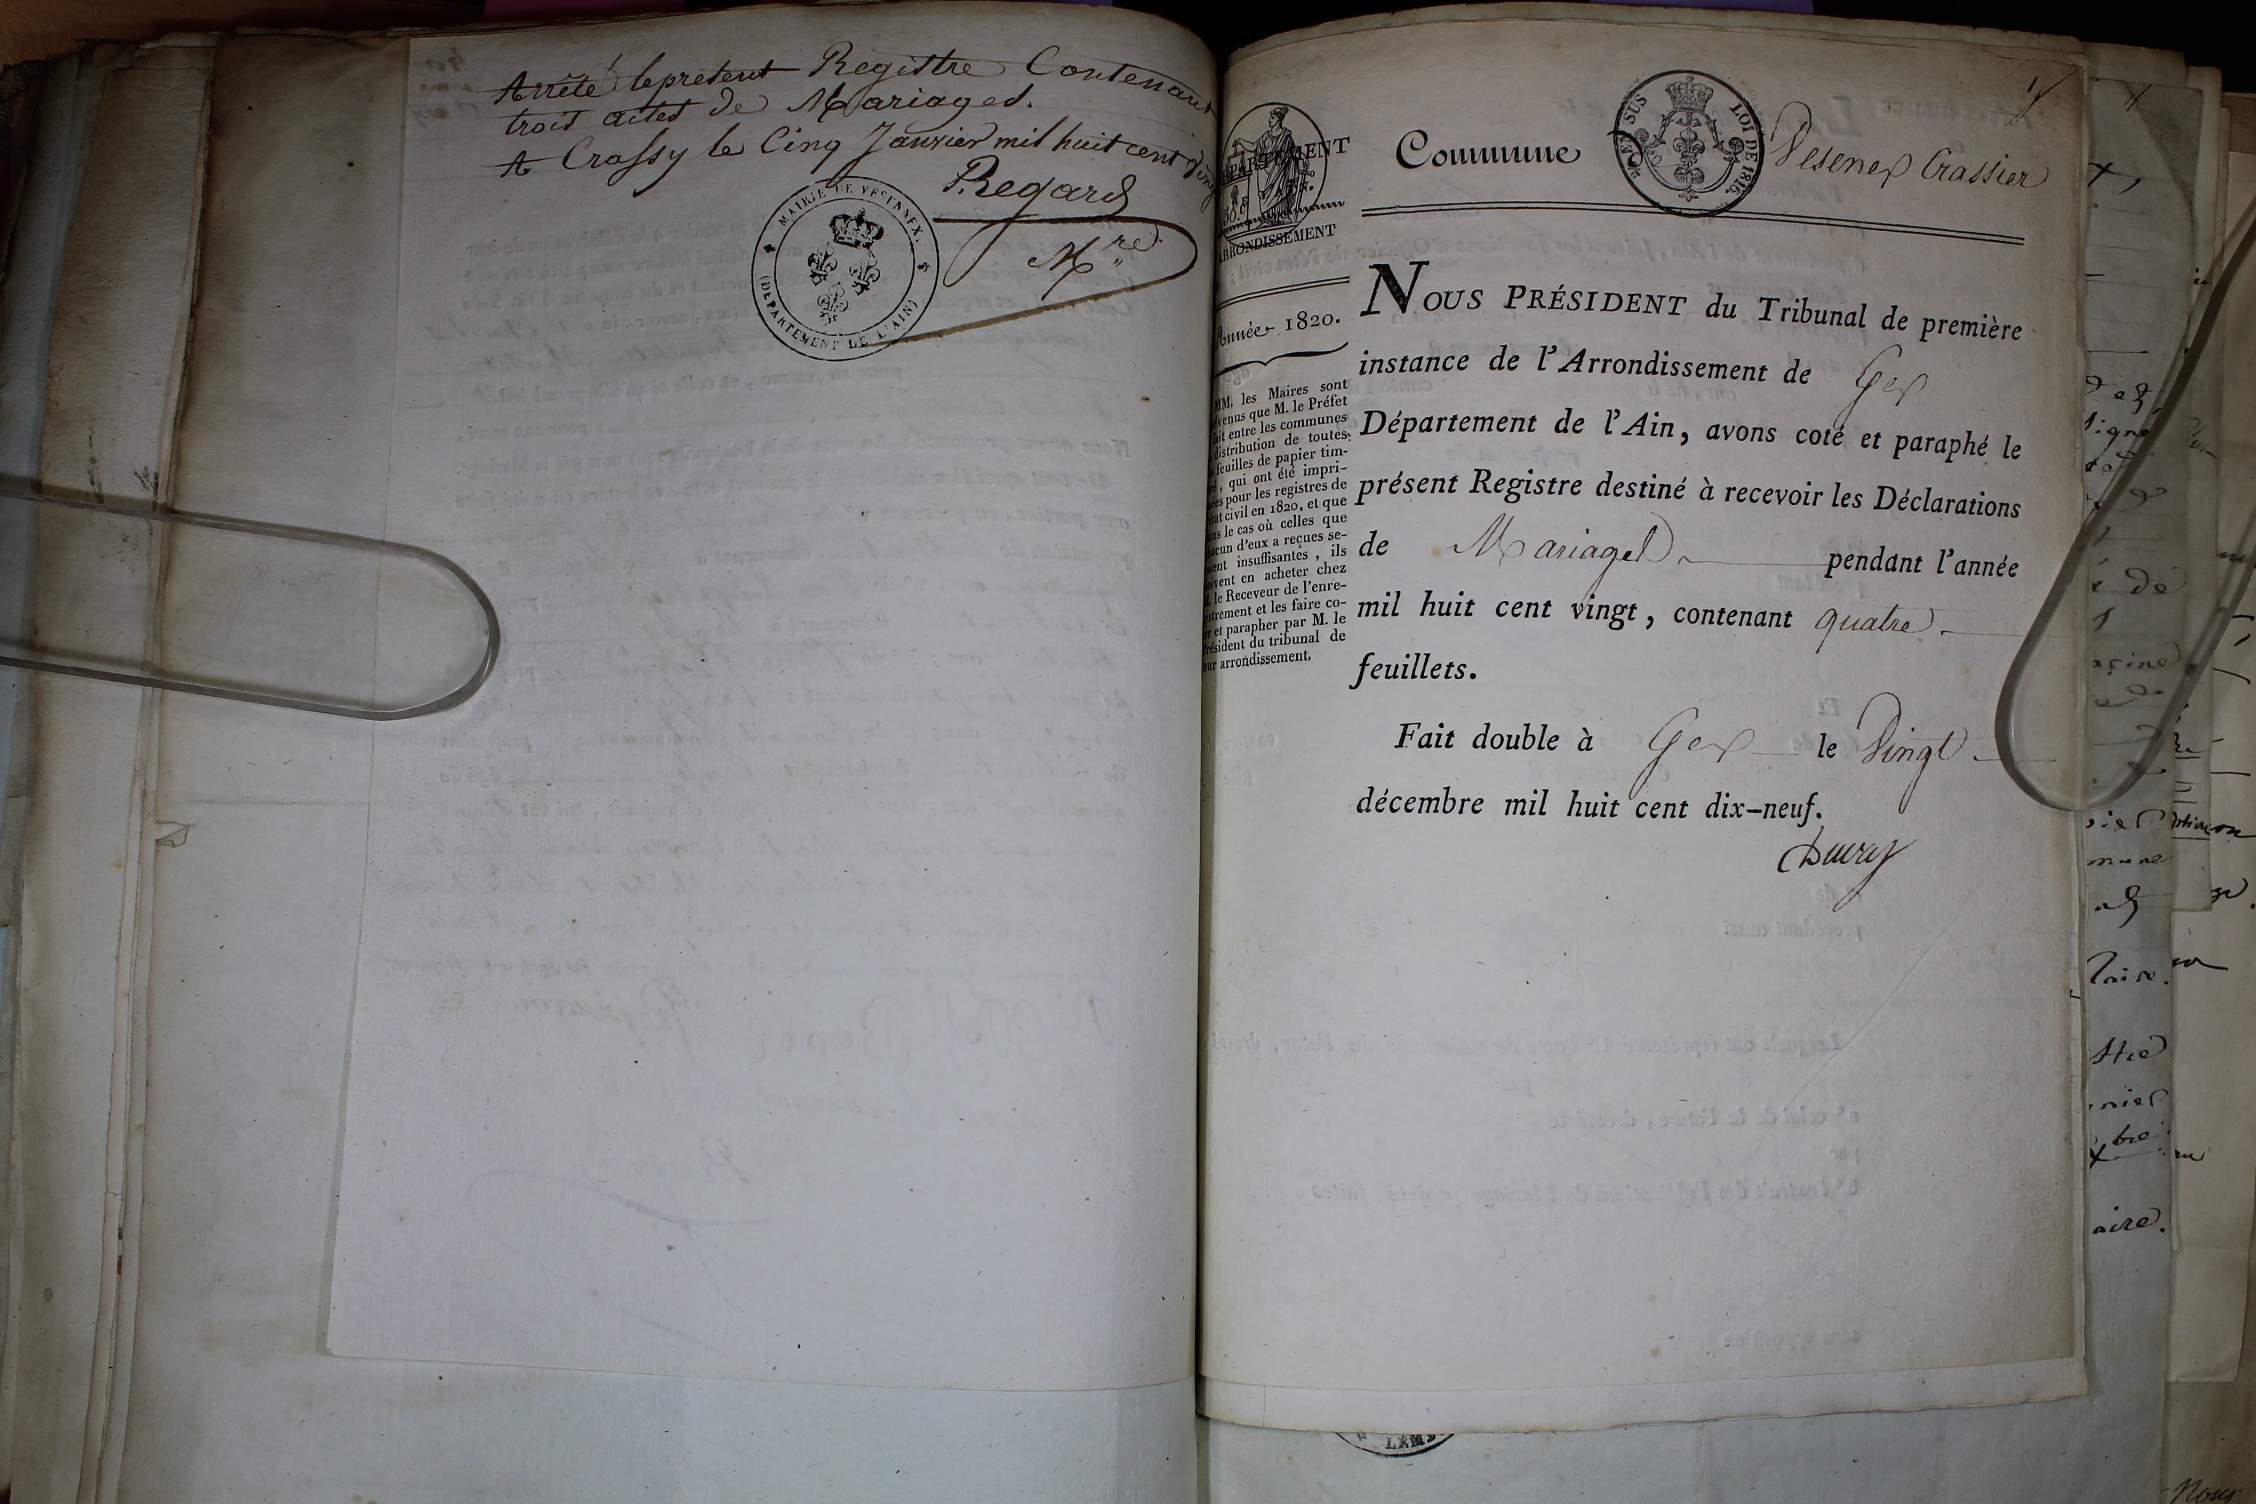 Arrêté le présent Registre Contenant
trois actes de Mariages.
A Crassy le Cinq Janvier mil huit cent vingt
Regard
Mre
MAIRIE DE VESENNEX.
(DEPARTEMENT DE L'AIN)
DÉPARTEMENT
ARRONDISSEMENT
Année 1820.
MM. les Maires sont
prévenus que M. le Préfet
fait entre les communes
distribution de toutes
feuilles de papier tim-
, qui ont été impri-
mées pour les registres de
l'état civil en 1820, et que
dans le cas où celles que
chacun d'eux a reçues se-
raient insuffisantes, ils
doivent en acheter chez
M. le Receveur de l'enre-
gistrement et les faire co-
ter et parapher par M. le
Président du tribunal de
leur arrondissement.
1
Commune Vesenex Crassier
EN SUS
LOI DE 1816.
NOUS PRÉSIDENT du Tribunal de première
instance de l'Arrondissement de Gex
Département de l'Ain, avons coté et paraphé le
présent Registre destiné à recevoir les Déclarations
de Mariages pendant l'année
mil huit cent vingt, contenant quatre
feuillets.
Fait double à Gex le Vingt
décembre mil huit cent dix-neuf.